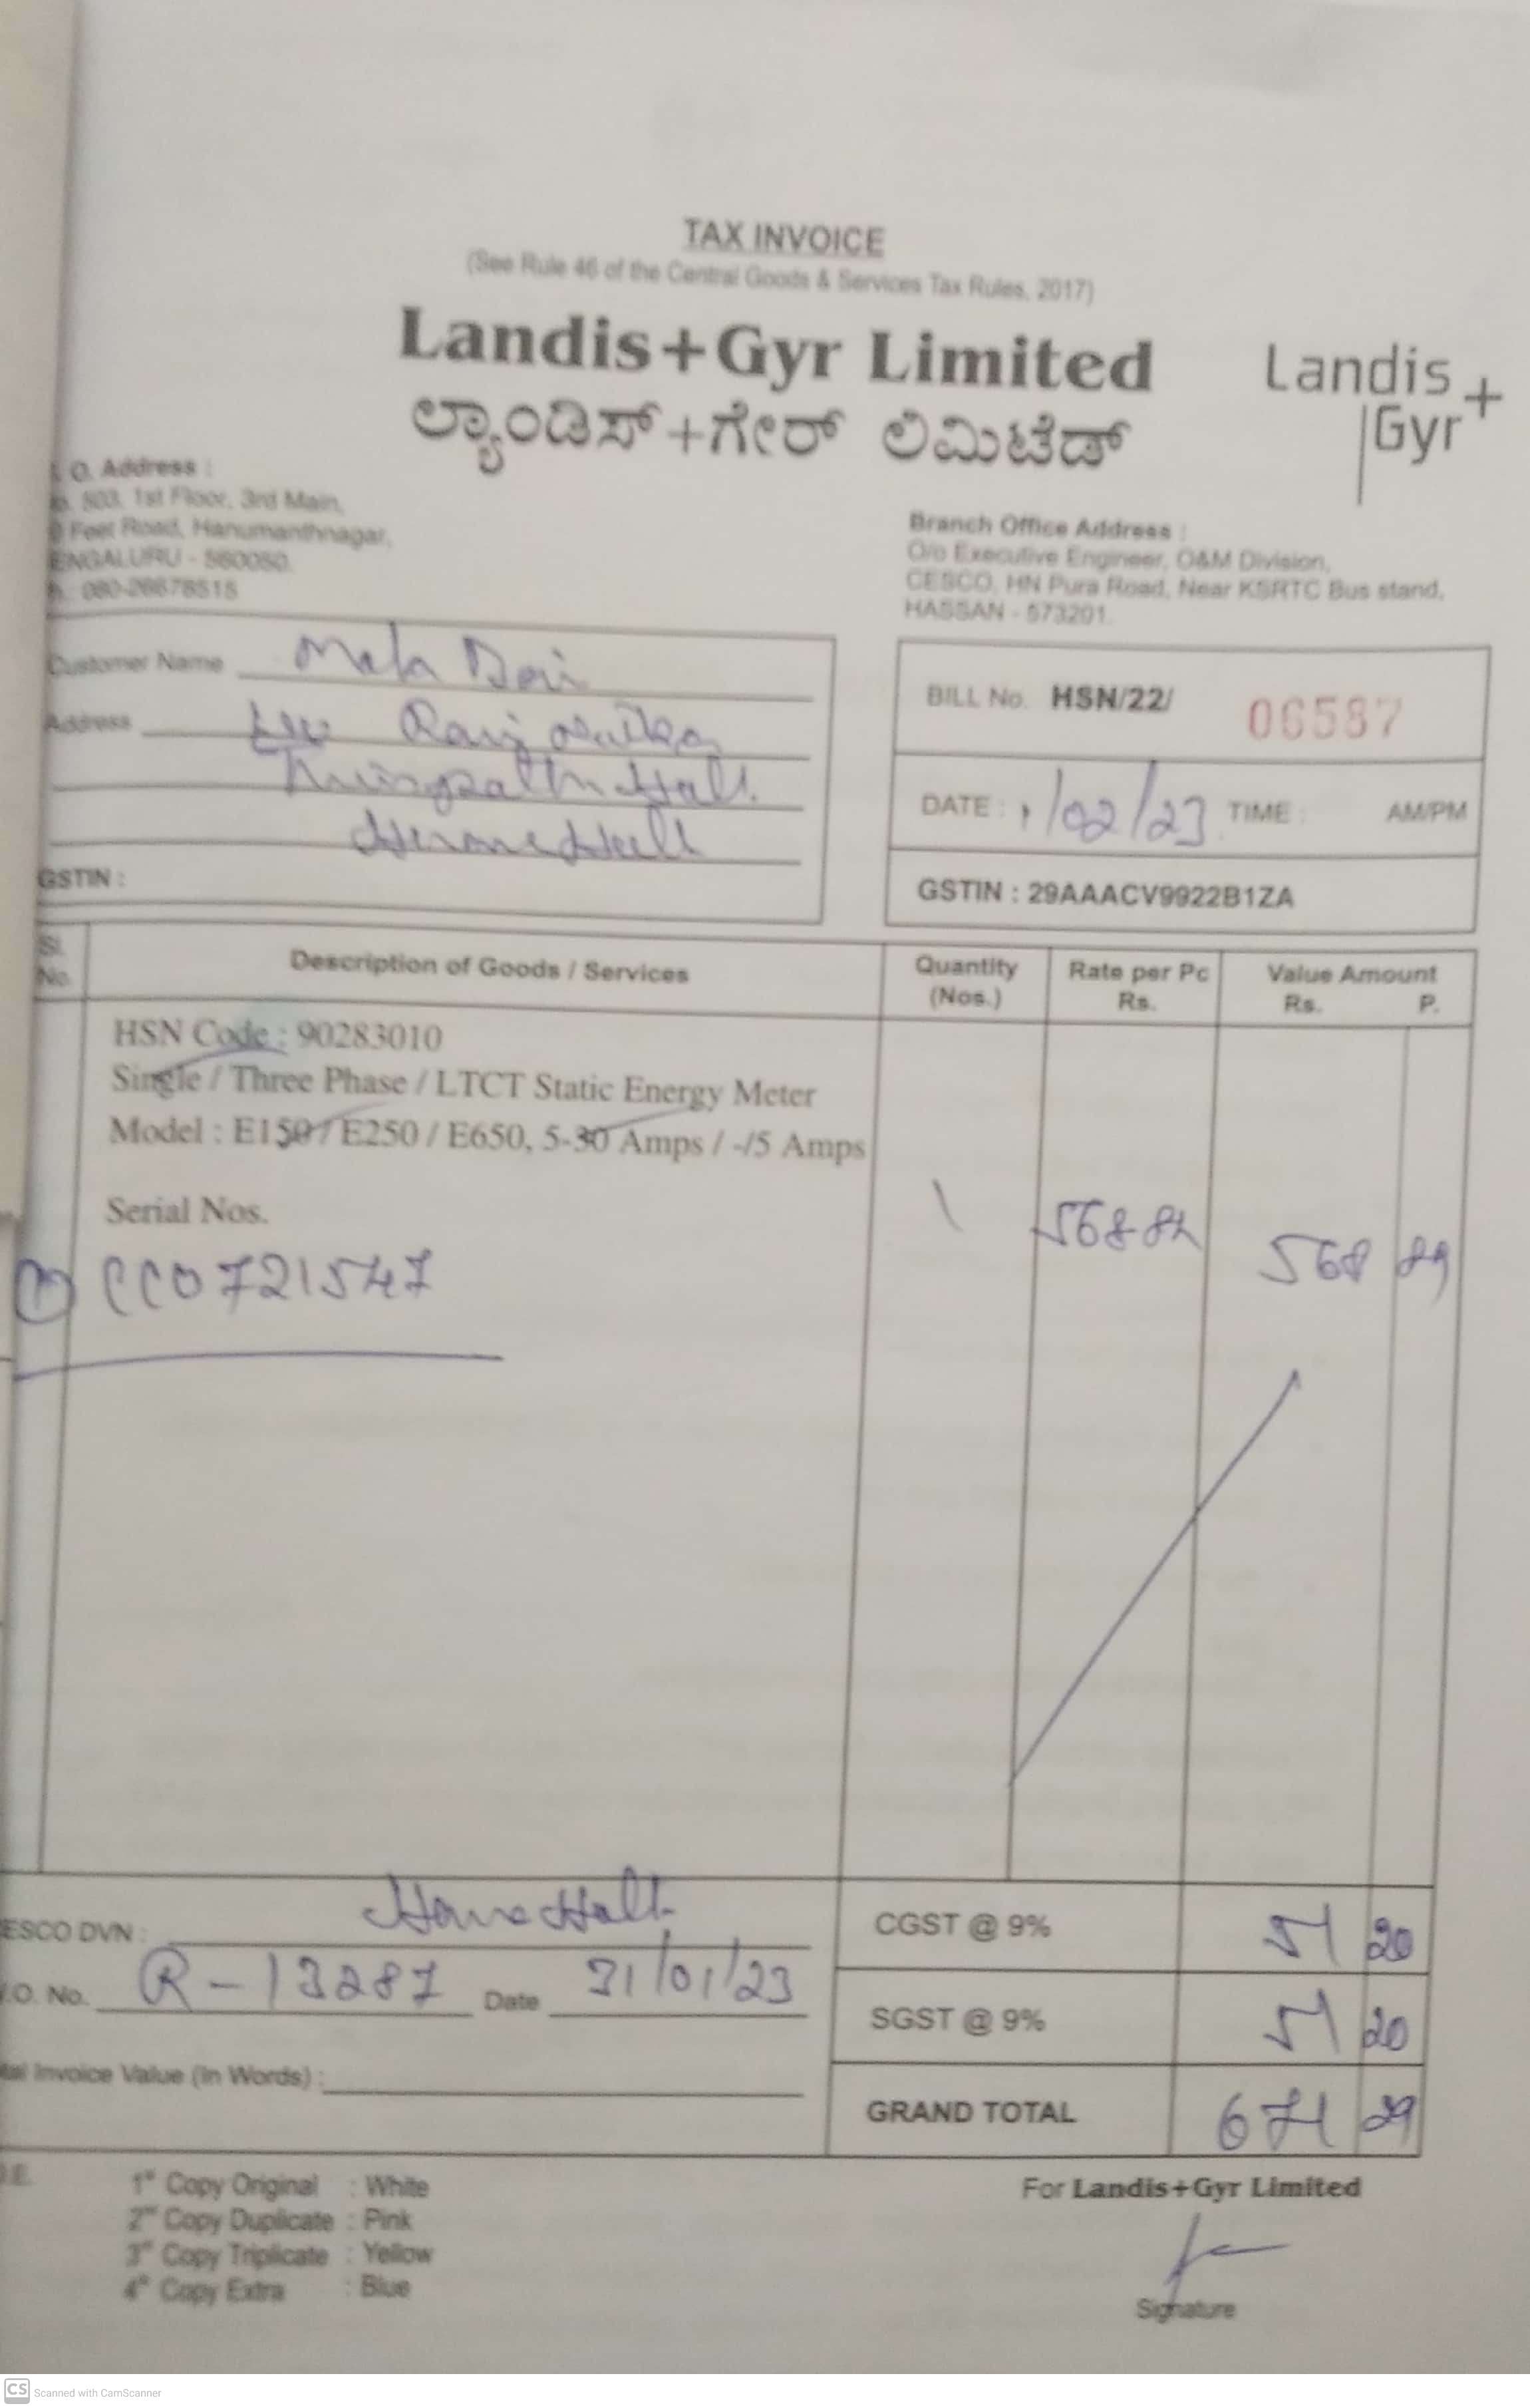 TAX INVOICE
(See Rule 46 of the Central Goods & Services Tax Rules, 2017)
Landis+Gyr Limited
ಲ್ಯಾಂಡಿಸ್+ಗೇರ್ ಲಿಮಿಟೆಡ್
Landis+
Gyr
O. Address :
503, 1st Floor, 3rd Main,
Feet Road, Hanumanthnagar,
ENGALURU - 560050.
080-26678515
Branch Office Address :
O/o Executive Engineer, O&M Division,
CESCO, HN Pura Road, Near KSRTC Bus stand,
HASSAN - 573201.
Customer Name
Address
GSTIN :
BILL No. HSN/22/ 06587
DATE : 1/02/23 TIME : AM/PM
GSTIN : 29AAACV9922B1ZA
Sl. No. Description of Goods / Services Quantity (Nos.) Rate per Pc Rs. Value Amount Rs. P.
HSN Code : 90283010
Single / Three Phase / LTCT Static Energy Meter
Model : E150 / E250 / E650, 5-30 Amps / -/5 Amps
Serial Nos. 1
1 CC0721547 568 89
ESCO DVN :
CGST @ 9% 51 20
.O. No. R-13287 Date 31/01/23
SGST @ 9% 51 20
Invoice Value (In Words) :
GRAND TOTAL 671 29
1st Copy Original : White
2nd Copy Duplicate : Pink
3rd Copy Triplicate : Yellow
4th Copy Extra : Blue
For Landis+Gyr Limited
Signature
CS Scanned with CamScanner